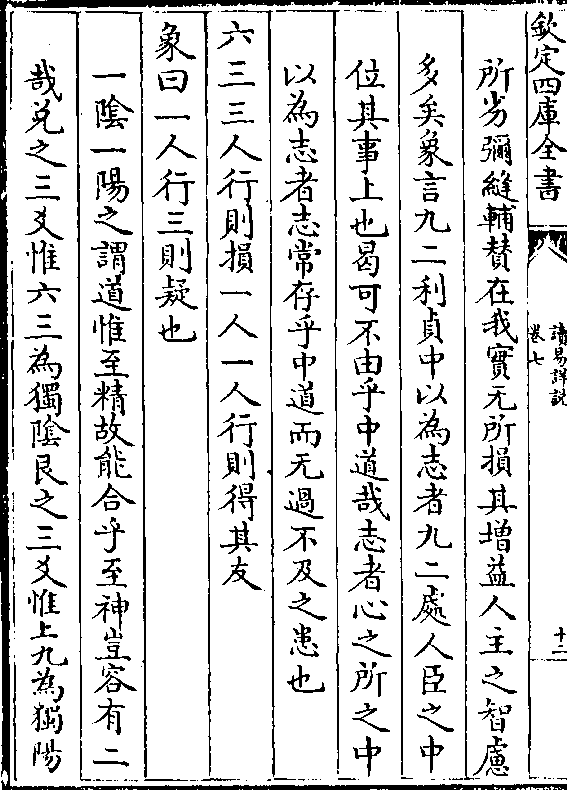 欽定四庫全書
讀易詳說
卷七
十二
所劣彌縫輔賛在我實无所損其增益人主之智慮
多矣象言九二利貞中以為志者九二處人臣之中
位其事上也曷可不由乎中道哉志者心之所之中
以為志者志常存乎中道而无過不及之患也
六三三人行則損一人一人行則得其友
象曰一人行三則疑也
一陰一陽之謂道惟至精故能合乎至神豈容有二
哉兌之三爻惟六三為獨陰艮之三爻惟上九為獨陽